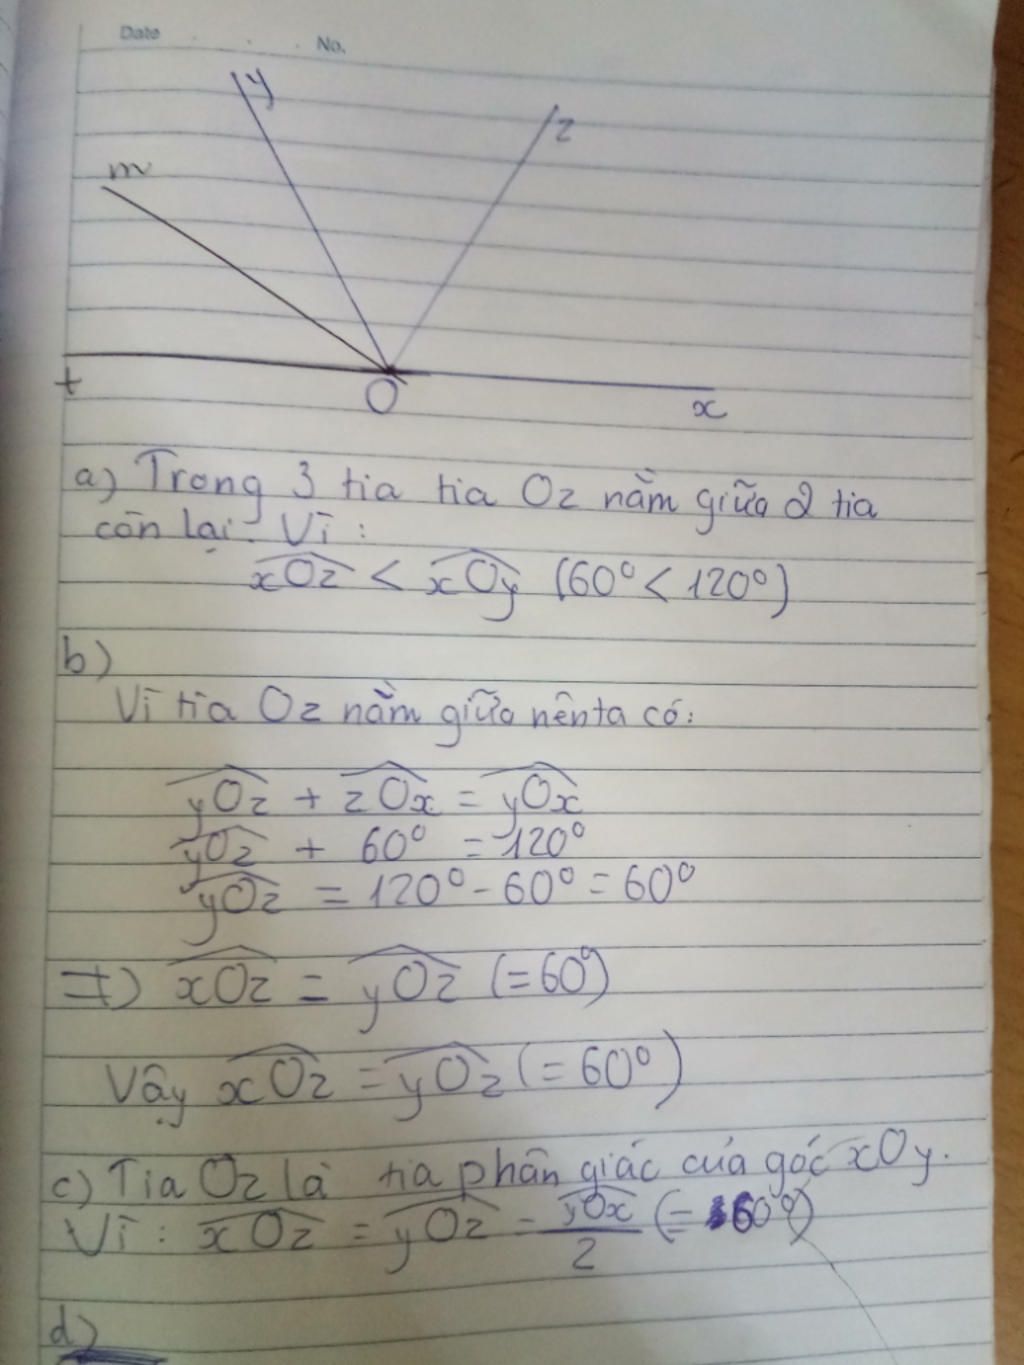 Date . . . No.
y
z
m
t
O
x
a) Trong 3 tia tia Oz nằm giữa 2 tia
còn lại. Vì :
xOz < xOy (60° < 120°)
b)
Vì tia Oz nằm giữa nên ta có:
yOz + zOx = yOx
yOz + 60° = 120°
yOz = 120° - 60° = 60°
=> xOz = yOz (= 60°)
Vậy xOz = yOz (= 60°)
c) Tia Oz là tia phân giác của góc xOy.
Vì : xOz = yOz = yOx/2 (= 60°)
d)